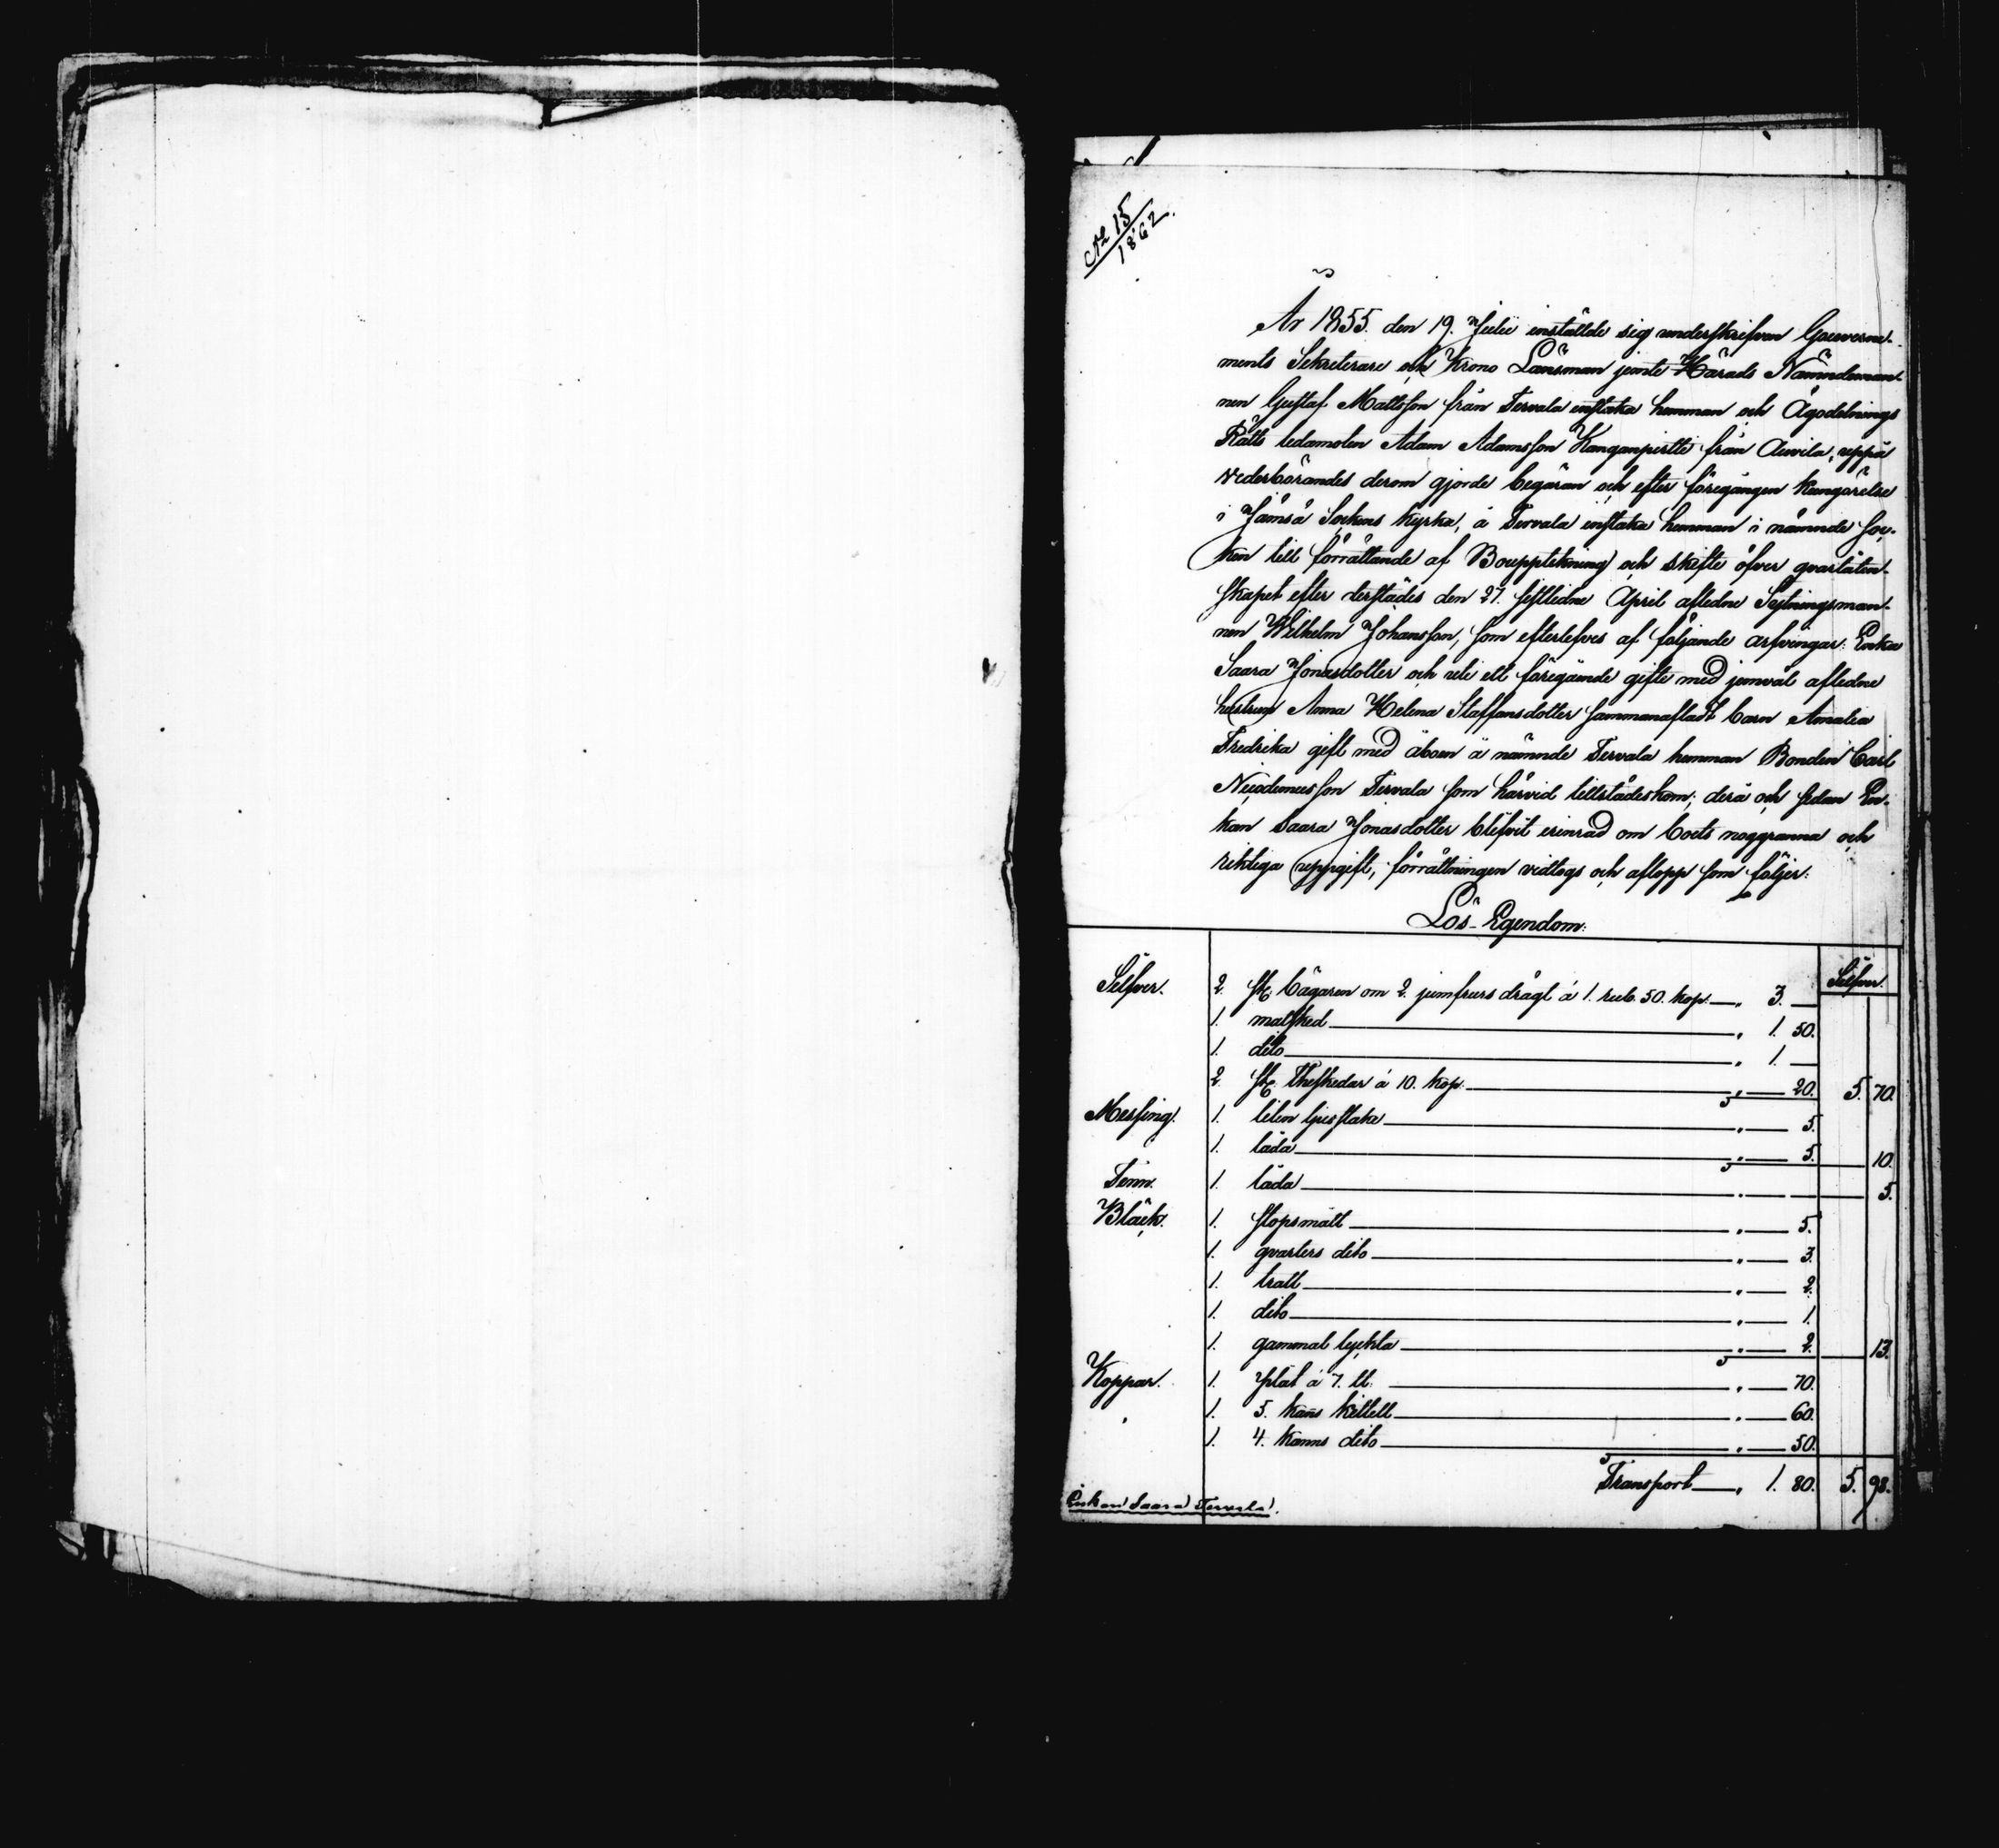 № 15
1862.
År 1855. den 19. Julii instälde sig underskrifven Gouverne-
ments Sekreterare och Krono Länsman jemte Härads Nämndeman-
nen Gustaf Mattsson från Tervala enstaka hemman och Ägodelnings
Rätts ledamoten Adam Adamsson Kanganpertti från Auvila, uppå
vederbörandes derom gjorde begäran och efter föregången kungörelse
i Jämsä Sockens kyrka, å Tervala enstaka hemman i nämnde Soc-
ken till förrättande af Bouppteckning och skifte öfver qvarlåten-
skapet efter derstädes den 27. sistledne April afledne Sextningsman-
nen Wilhelm Johansson, som efterlefves af följande arfvingar: Enka
Saara Jonasdotter och uti ett föregående gifte med jemväl afledne
hustrun Anna Helena Staffansdotter sammanafladt barn Amalia
Fredrika gift med åboen å nämnde Tervala hemman Bonden Carl
Nicodemusson Tervala som härvid tillstädeskom; derå och sedan En-
kan Saara Jonasdotter blifvit erinrad om boets noggranna och
riktiga uppgift, förrättningen vidtogs och aflopp som följer:
Lös-Egendom:
Silfver.
Silfver. 2. st. bägaren om 2. jumfrurs drägt á 1. rub. 50. kop. — „ 3. —
1. matsked — „ 1. 50.
1. dito — „ 1. —
2. st. theskedar á 10. kop. — „ — 20. 5. 70.
Messing. 1. liten ljusstake — „ — 5.
1. låda — „ — 5. 10.
Tenn. 1. låda — „ — 5.
Bläck. 1. stopsmått — „ — 5.
1. qvarters dito — „ — 3.
1. tratt — „ — 2.
1. dito — „ — 1.
1. gammal lyckta — „ — 2. 13.
Koppar. 1. plåt á 7. ℔. — „ — 70.
1. 5. kañs kittell — „ — 60.
1. 4. kanns dito — „ — 50.
Transport — „ 1. 80. 5. 98.
Enkan Saara Tervala.